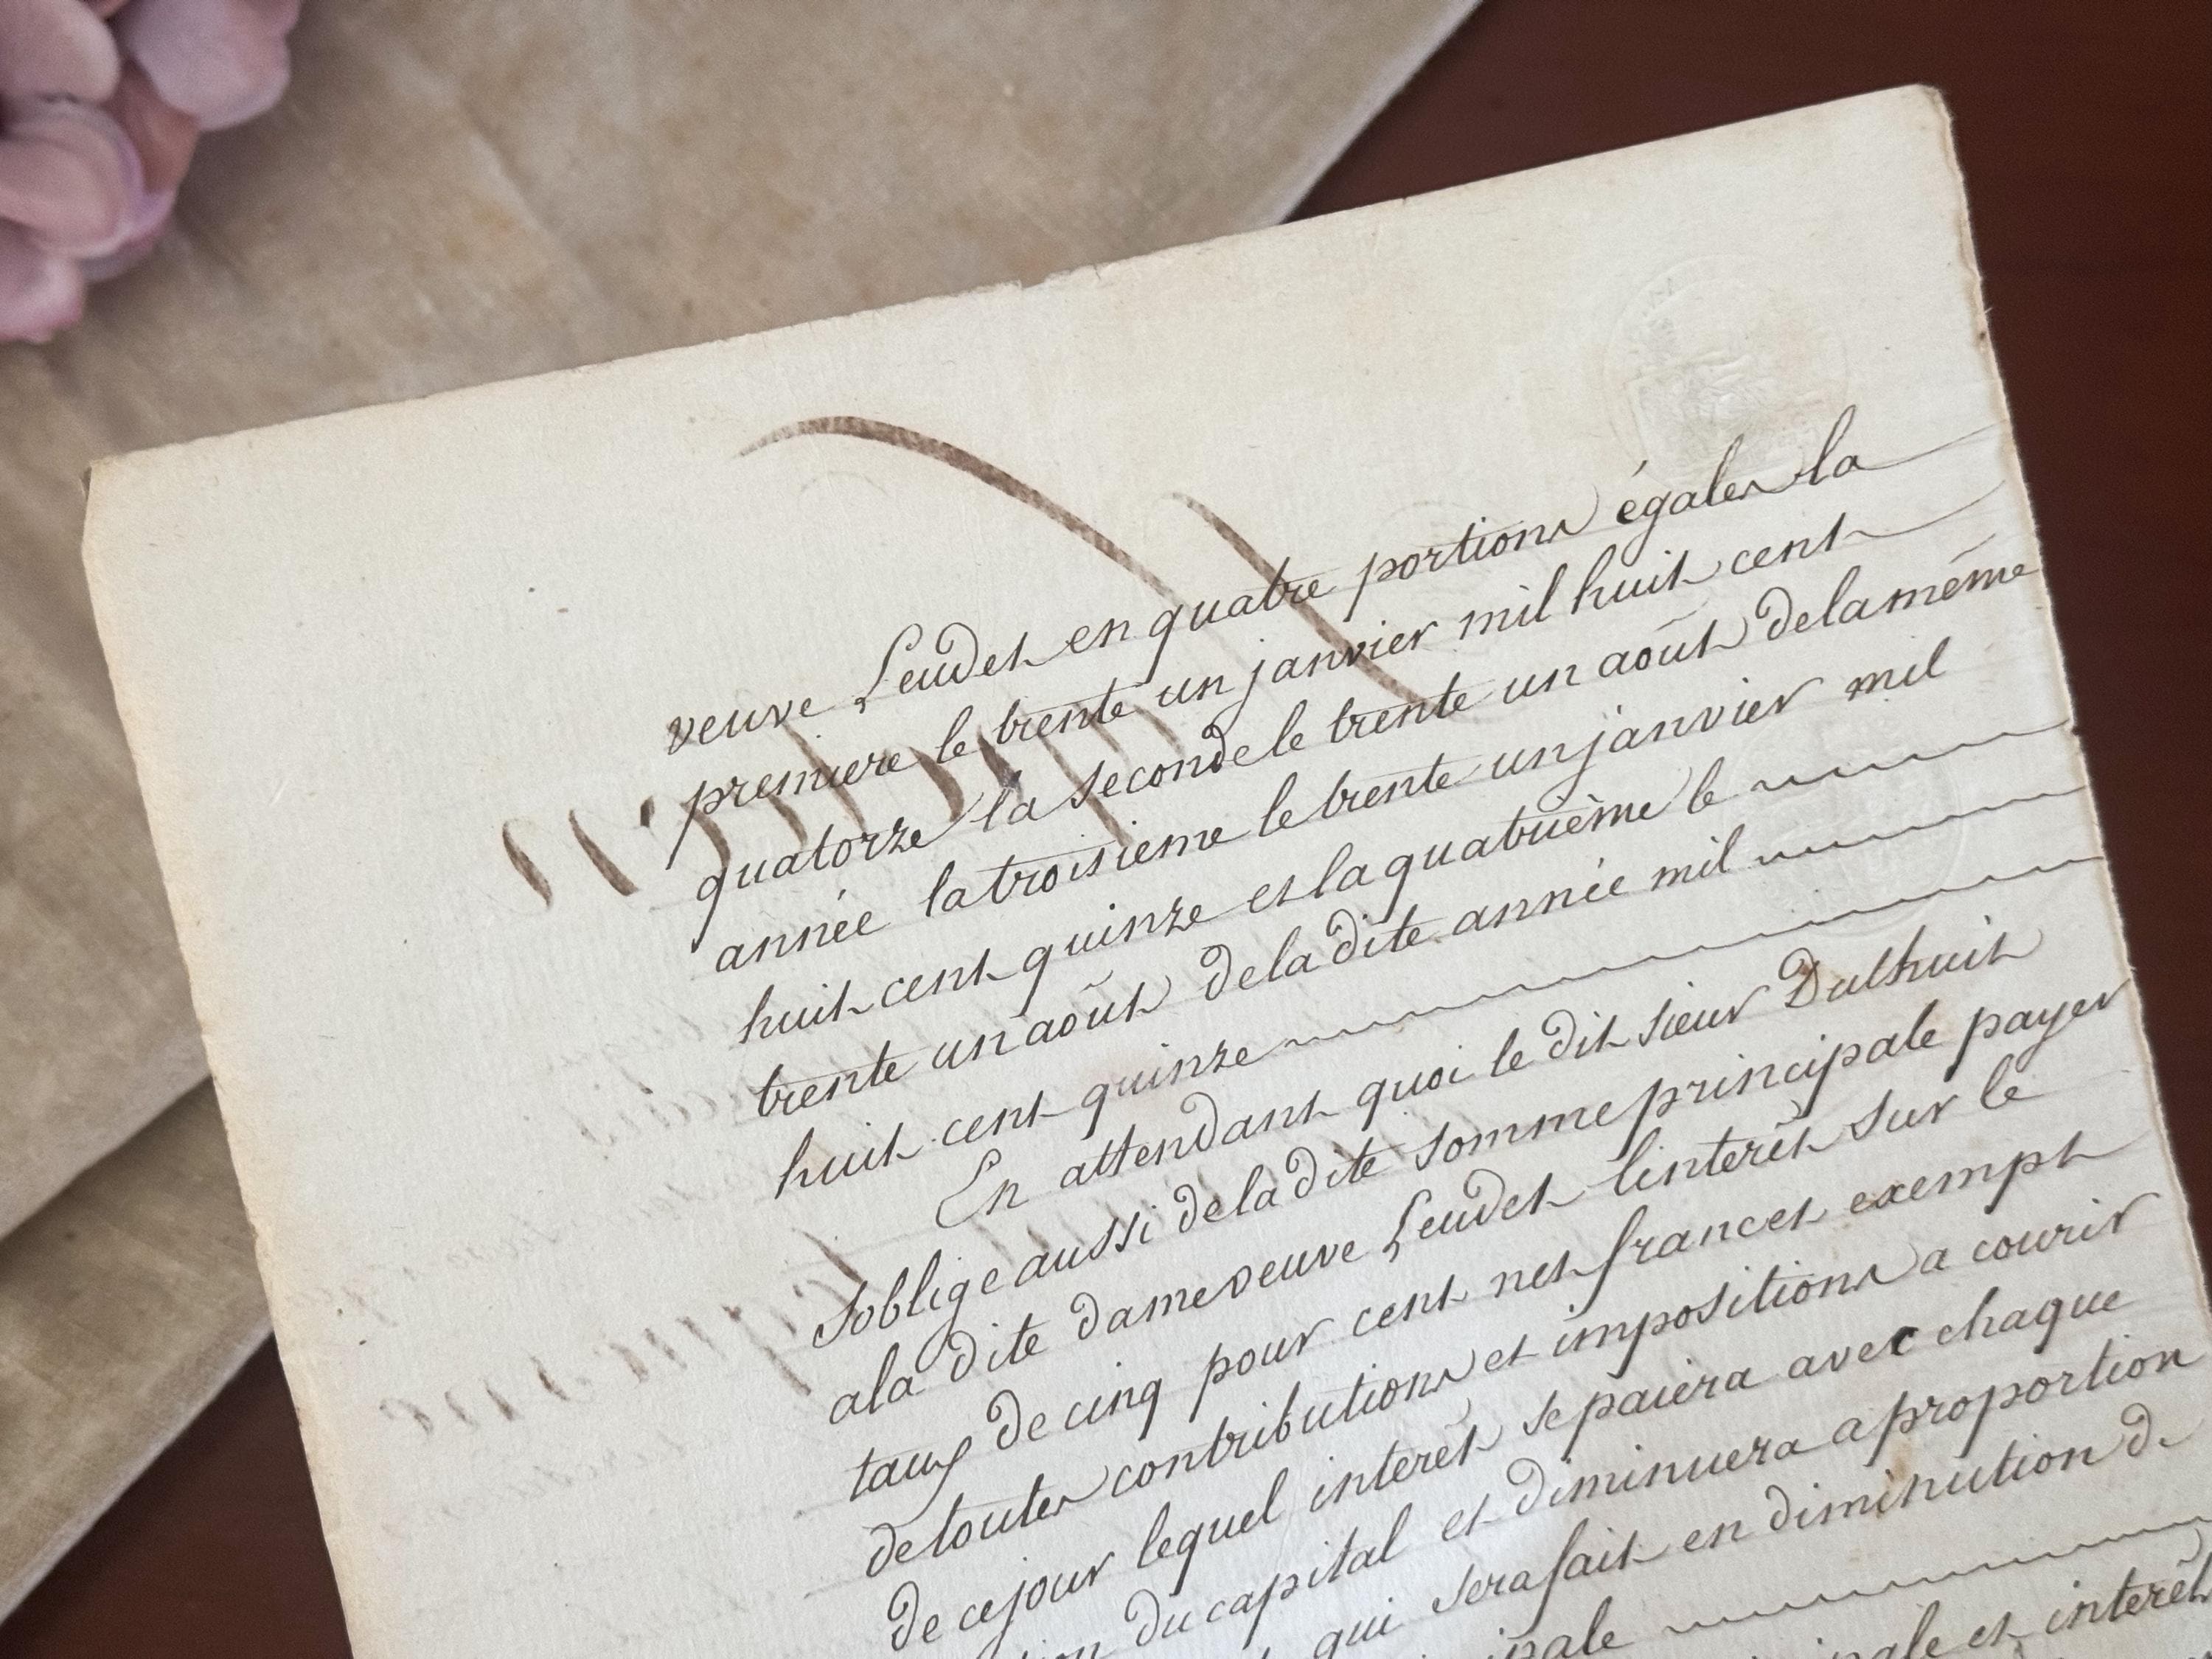 veuve Leudet en quatre portions égales la
premiere le trente un janvier mil huit cent
quatorze la seconde le trente un août de la même
année la troisieme le trente un janvier mil
huit cent quinze et la quatrième le
trente un août de la dite année mil
huit cent quinze
En attendant quoi le dit sieur Duthuit
s'oblige aussi de la dite somme principale payer
a la dite dame veuve Leudet linterêt sur le
taux de cinq pour cent net francet exempt
de toutes contributions et impositions a courir
de ce jour lequel interêt se paiera avec chaque
du capital et diminuera a proportion
qui sera fait en diminution de
et interêt